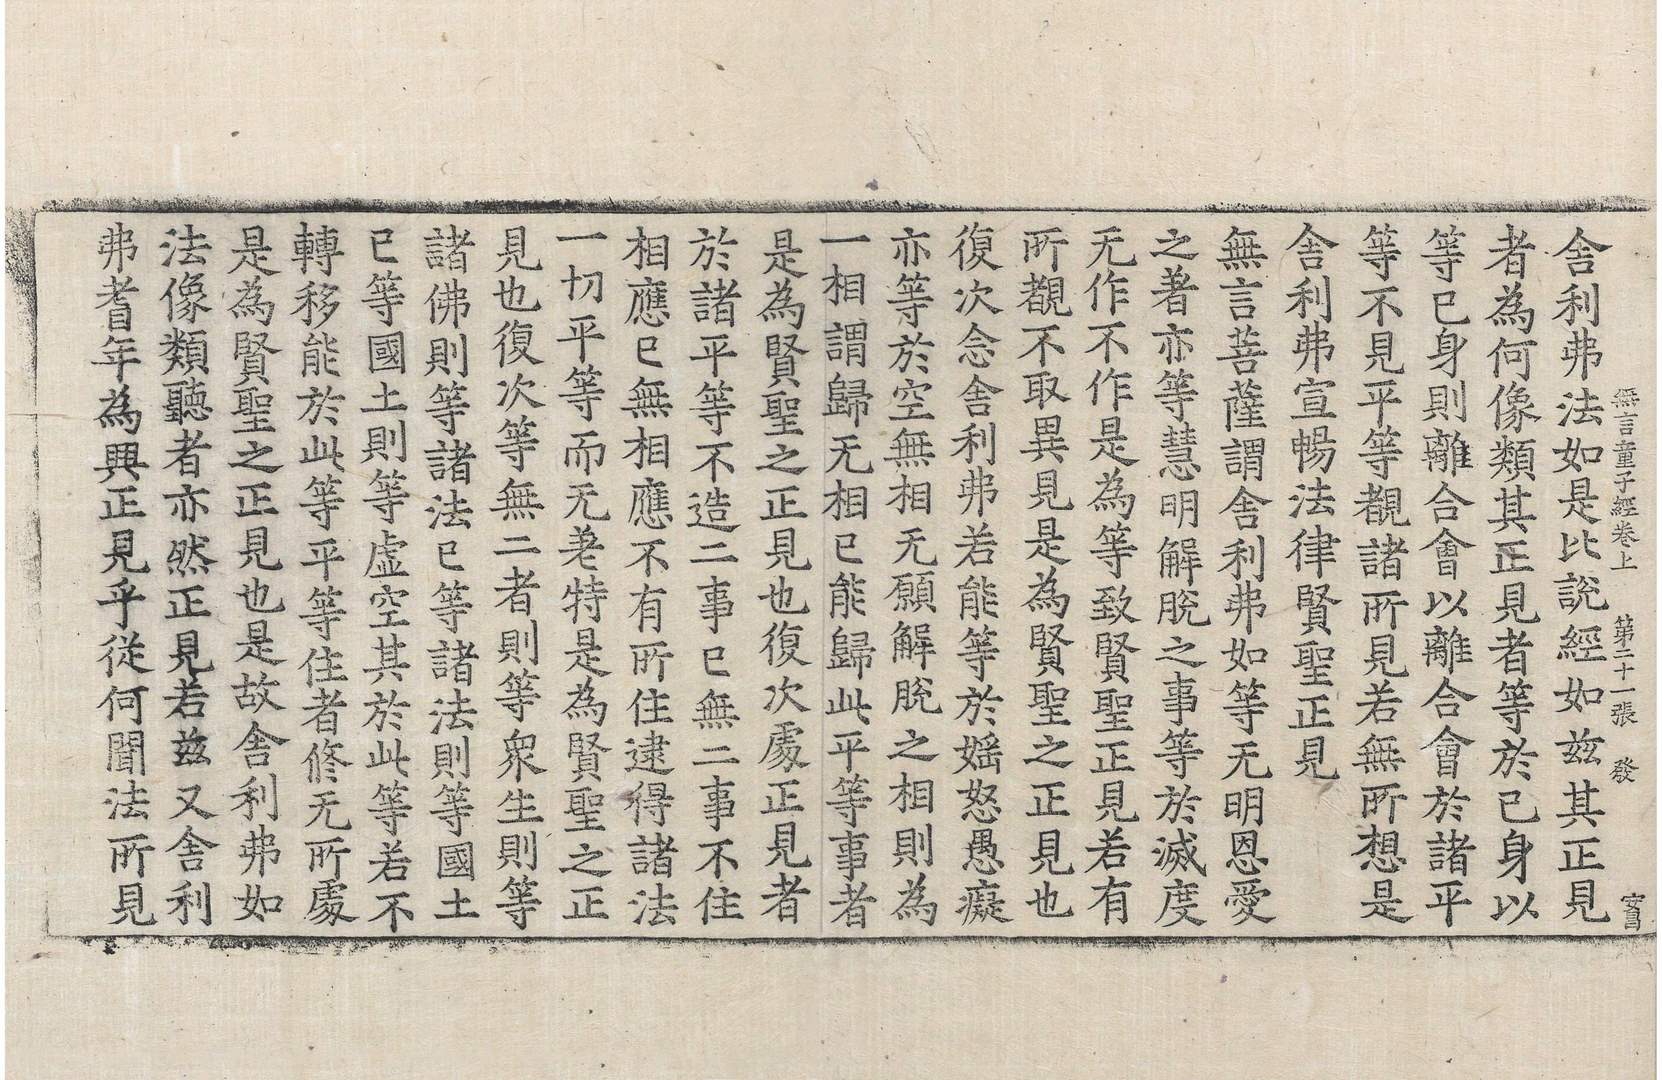 無言童子經卷上 第二十一張 發 安昌
舍利弗法如是比說經如玆其正見
者為何像類其正見者等於己身以
等己身則離合會以離合會於諸平
等不見平等覩諸所見若無所想是
舍利弗宣暢法律賢聖正見
無言菩薩謂舍利弗如等无明恩愛
之著亦等慧明解脫之事等於滅度
无作不作是為等致賢聖正見若有
所覩不取異見是為賢聖之正見也
復次念舍利弗若能等於婬怒愚癡
亦等於空無相无願解脫之相則為
一相謂歸无相已能歸此平等事者
是為賢聖之正見也復次處正見者
於諸平等不造二事已無二事不住
相應已無相應不有所住逮得諸法
一切平等而无差特是為賢聖之正
見也復次等無二者則等衆生則等
諸佛則等諸法已等諸法則等國土
已等國土則等虛空其於此等若不
轉移能於此等平等住者修无所處
是為賢聖之正見也是故舍利弗如
法像類聽者亦然正見若玆又舍利
弗耆年為興正見乎從何聞法所見